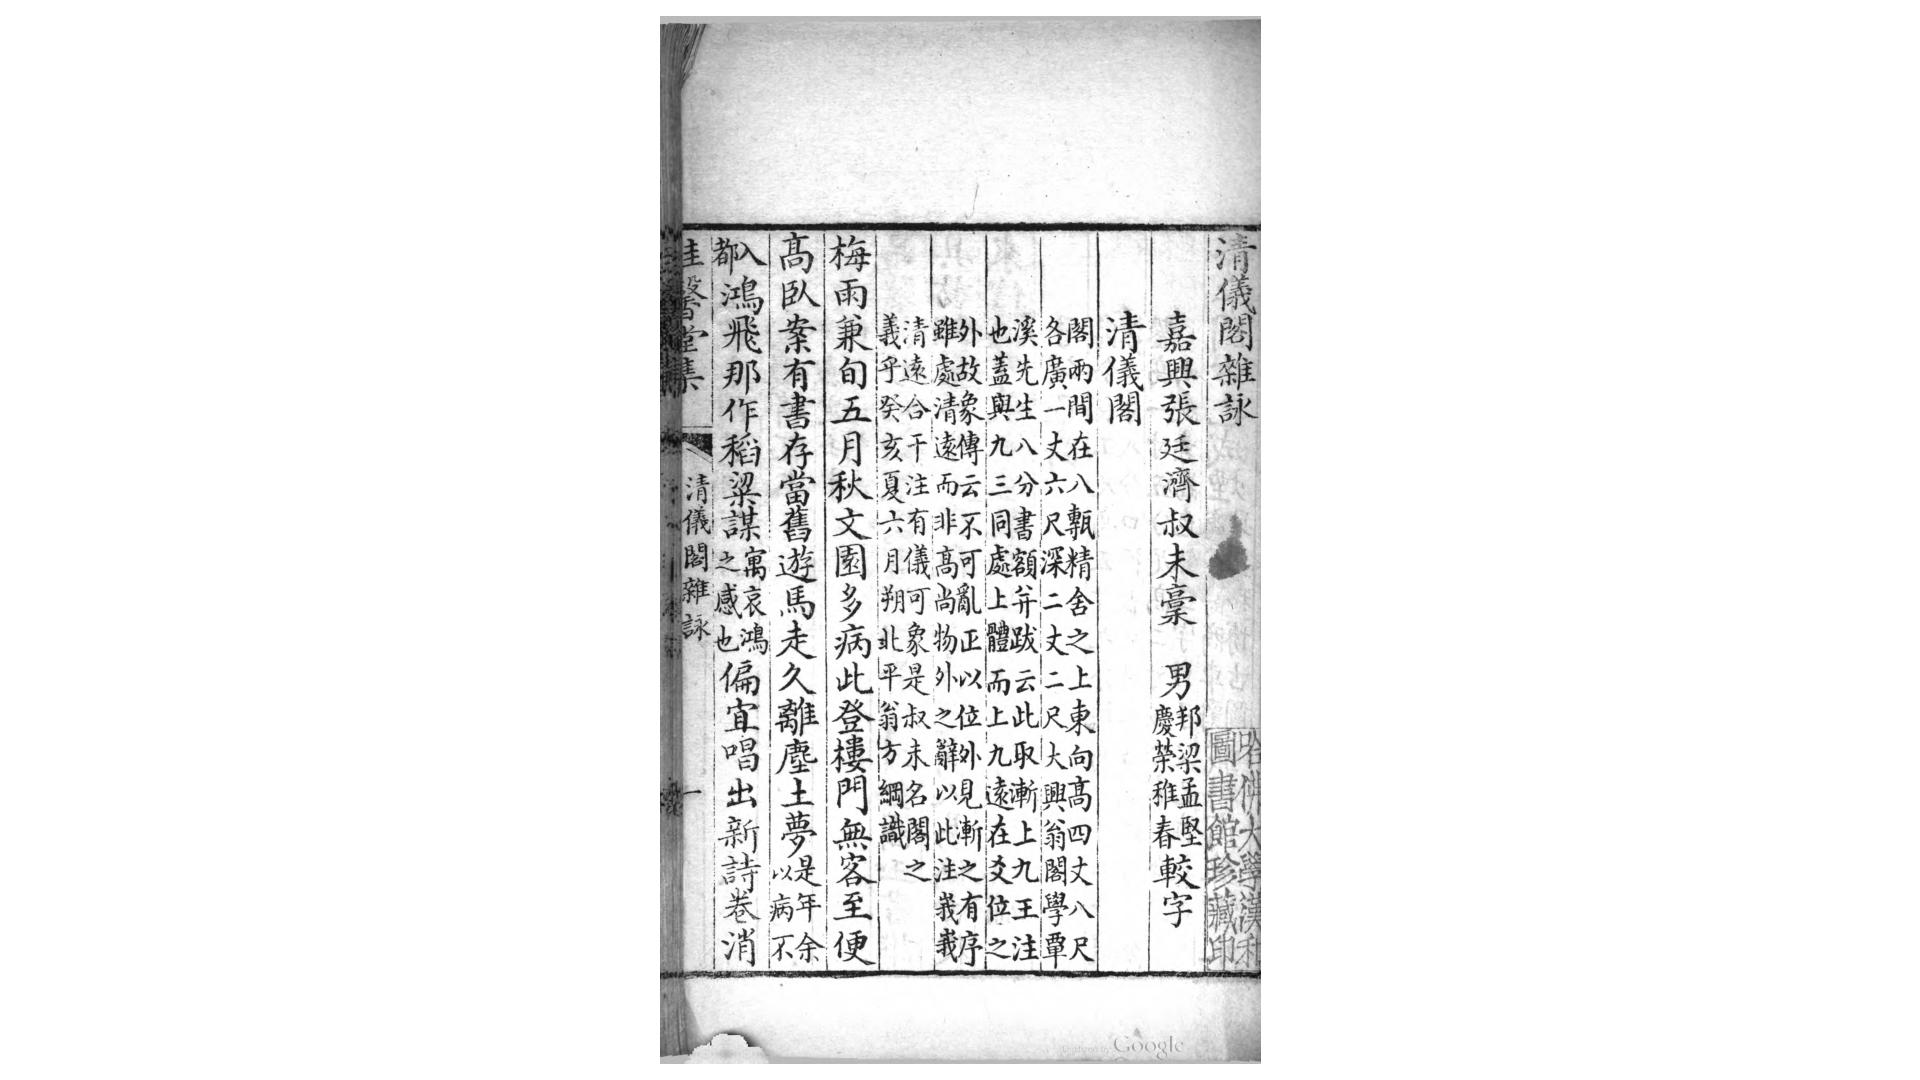 清儀閣雜詠
嘉興張廷濟叔未稾　男
邦梁孟堅
慶榮稚春
較字
清儀閣
閣兩間在八甎精舍之上東向高四丈八尺
各廣一丈六尺深二丈二尺大興翁閣學覃
溪先生八分書額并跋云此取漸上九王注
也蓋與九三同處上體而上九遠在爻位之
外故象傳云不可亂正以位外見漸之有序
雖處清遠而非高尚物外之辭以此注峩峩
清遠合干注有儀可象是叔未名閣之
義乎癸亥夏六月朔北平翁方綱識
梅雨兼旬五月秋文園多病此登樓門無客至便
高臥案有書存當舊遊馬走久離塵土夢
是年余
以病不
入
都
鴻飛那作稻粱謀
寓哀鴻
之感也
偏宜唱出新詩卷消
桂馨堂集
清儀閣雜詠
一
哈佛大學漢和
圖書館珍藏印
Digitized by Google